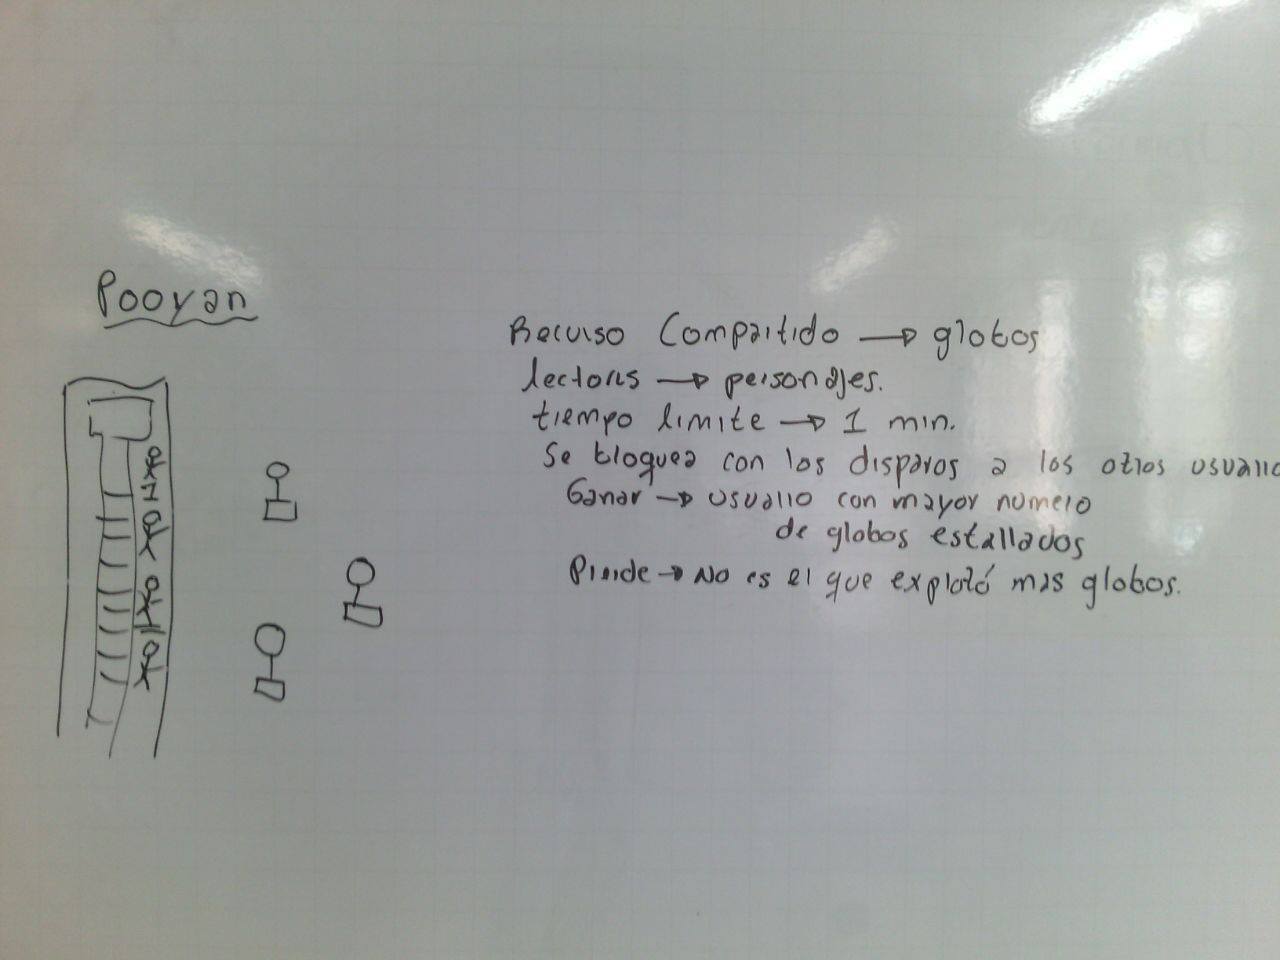 Pooyan
Recurso Compartido → globos
lectores → personajes.
tiempo limite → 1 min.
Se bloquea con los disparos a los otros usuario
Ganar → usuario con mayor numero
de globos estallados
Pierde → No es el que explotó mas globos.